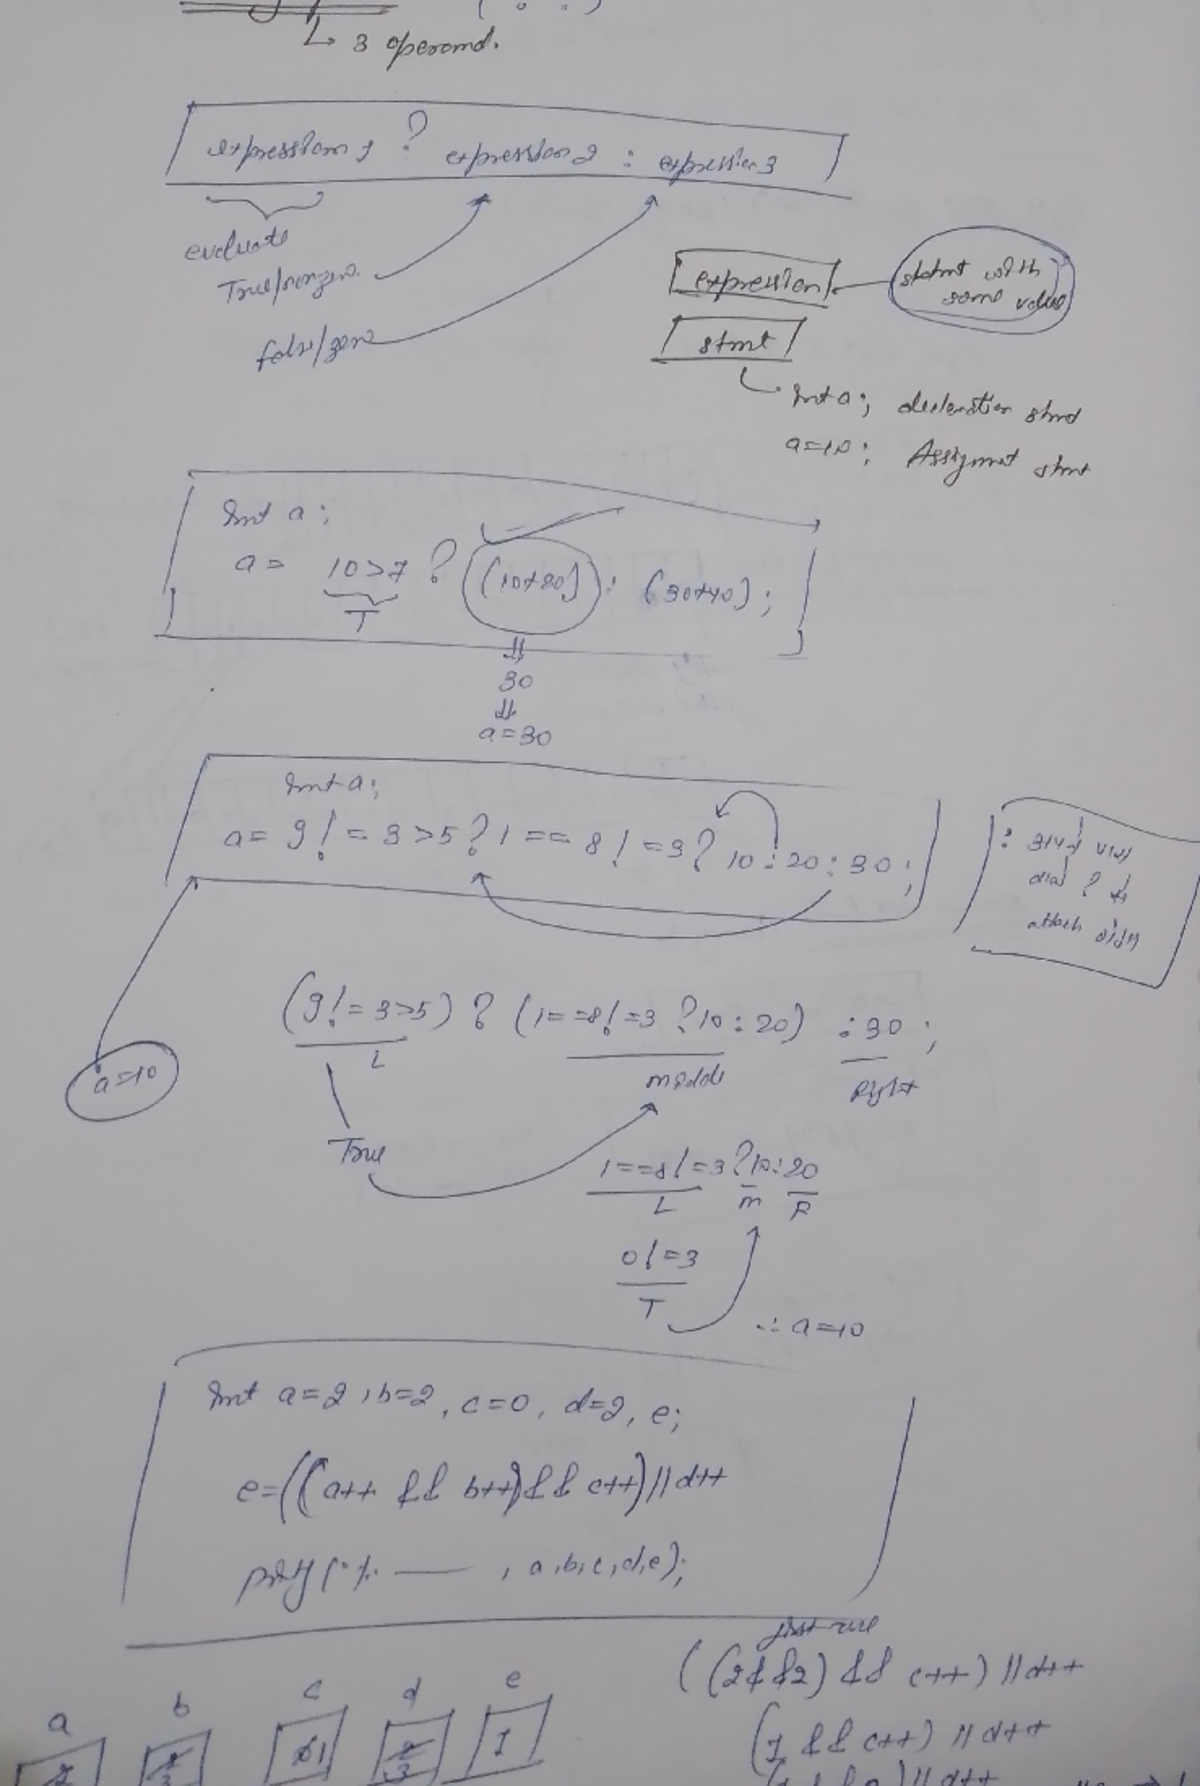 ( ? : )
↳ 3 operand.
expression 1 ? expression 2 : expression 3
evaluate
True/nonzero
false/zero
expression
statmt with
some value
stmt
int a; declaration stmt
a=10; Assignment stmt
int a;
a= 10>7 ? (10+20) : (30+40);
T
⇓
30
⇓
a=30
int a;
a= 9!=3>5?1==8!=3?10:20:30;
attach
(9!=3>5) ? (1==8!=3 ?10:20) :30;
L middle Right
a=10
True
1==8!=3?10:20
L m R
0!=3
T
∴ a=10
int a=2, b=2, c=0, d=2, e;
e=((a++ && b++)&& c++)||d++
printf("%. —— , a,b,c,d,e);
first use
((2&&2) && c++) || d++
(1 && c++) || d++
|| d++
a b c d e
2 2 3 0 1 2 3 1